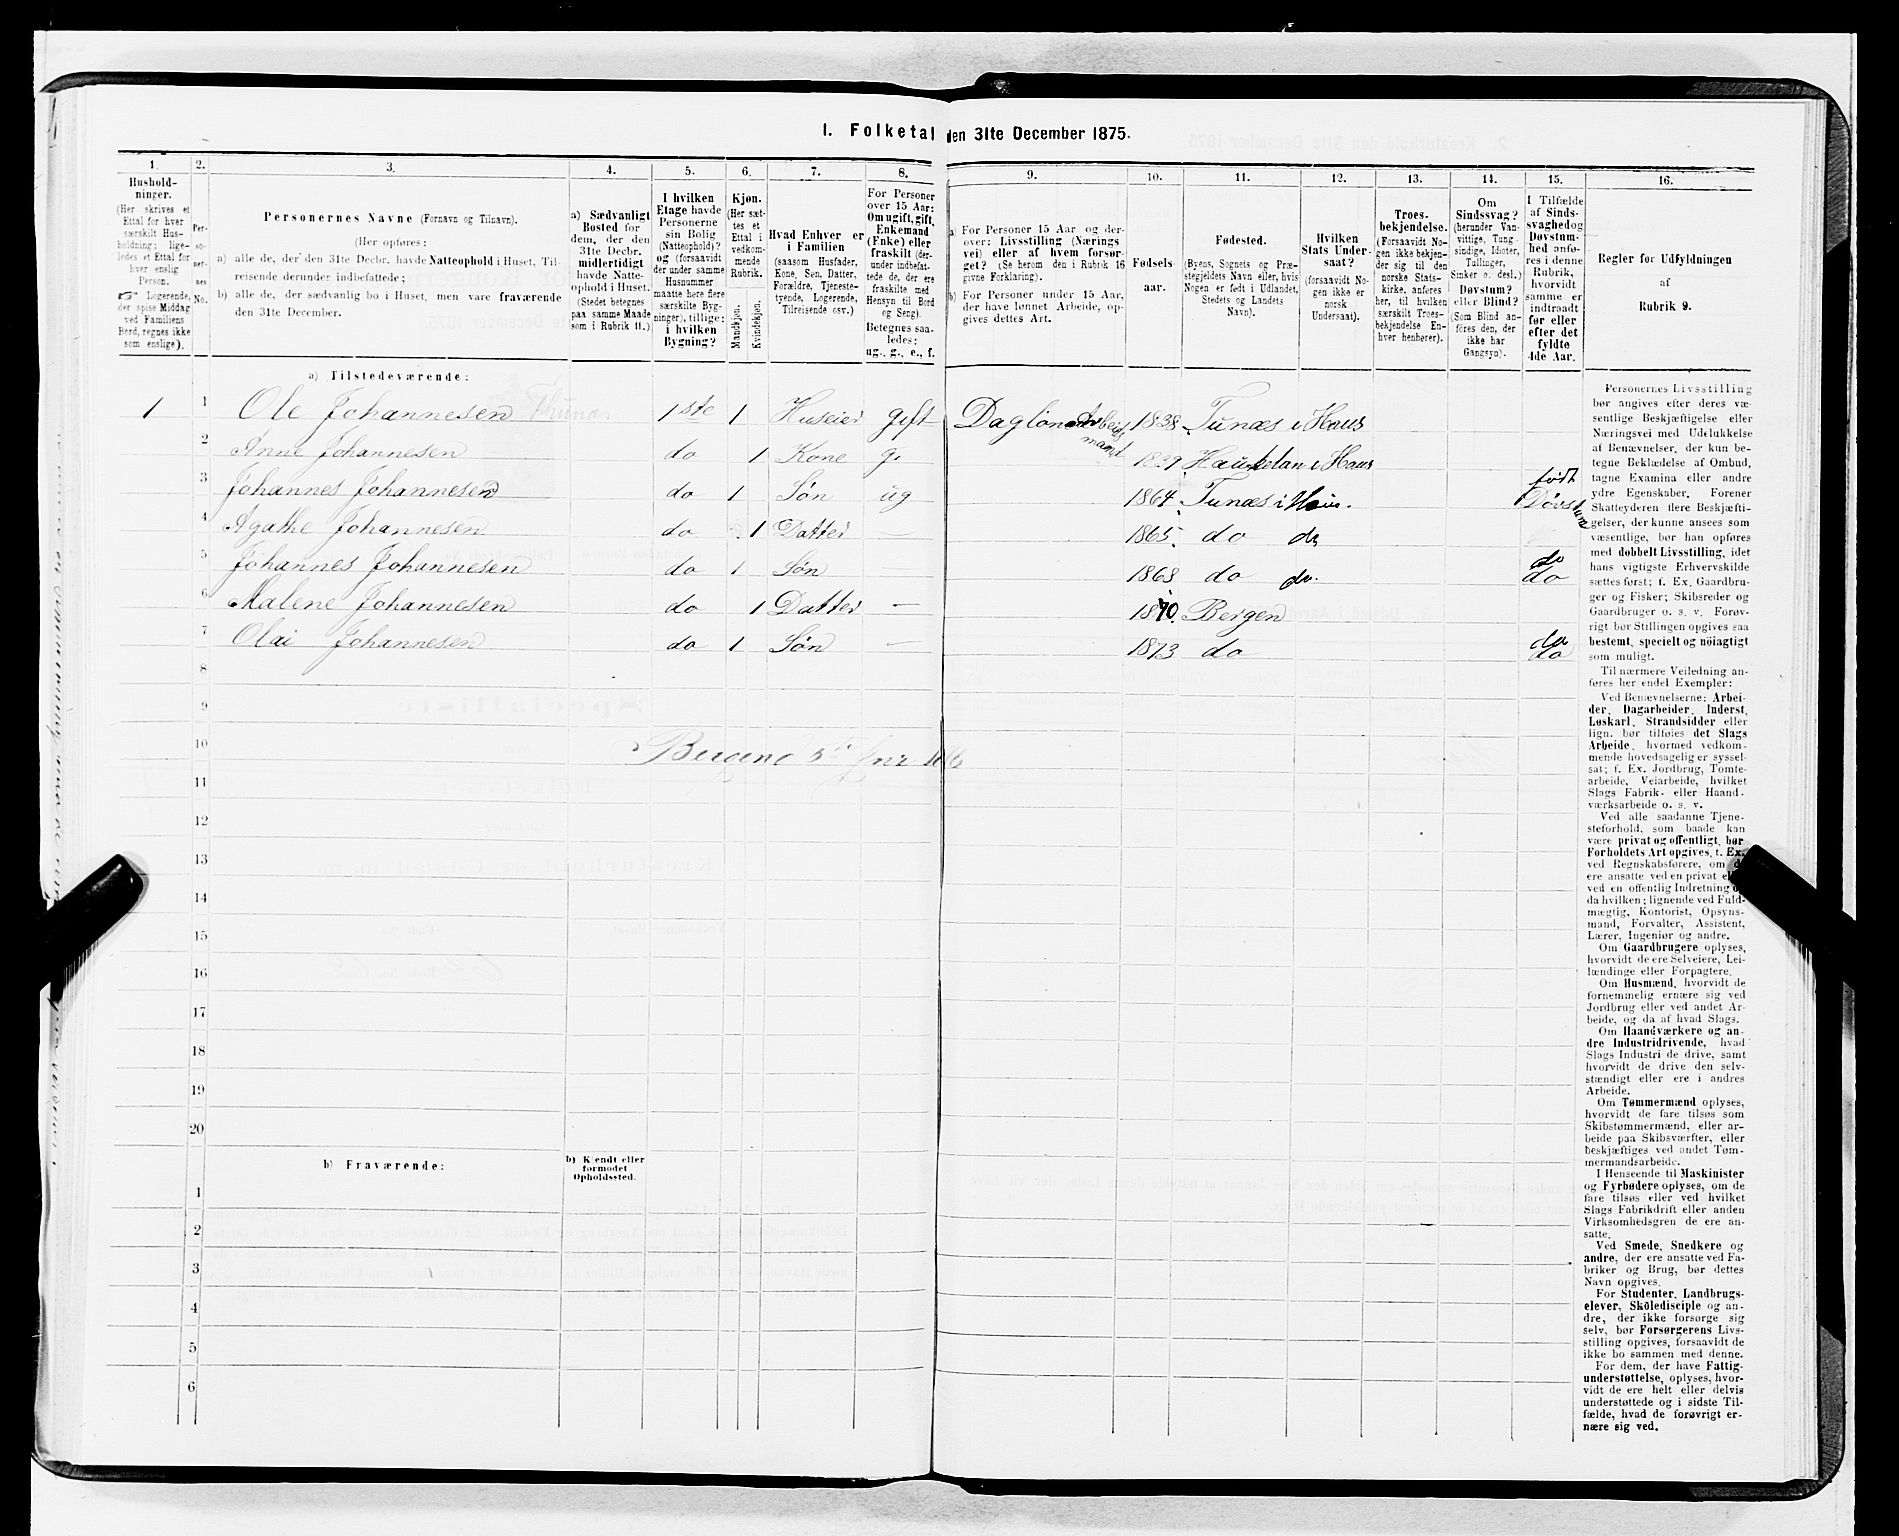 1. Folketal den 31te December 1875.
1. 2. 3. 4. 5. 6. 7. 8. 9. 10. 11. 12. 13. 14. 15. 16.
Hushold-
ninger.
(Her skrives et
Ettal for hver
særskilt Hus-
holdning; lige-
ledes et Ettal for
hver enslig
Person.
☞ Logerende,
der spise Middag
ved Familiens
Bord, regnes ikke
som enslige).
Per-
so-
ner-
nes
No.
Personernes Navne (Fornavn og Tilnavn).
(Her opføres:
a) alle de, der den 31te Decbr. havde Natteophold i Huset, Til-
reisende derunder indbefattede;
b) alle de, der sædvanlig bo i Huset, men vare fraværende
den 31te December.
a) Sædvanligt
Bosted for
dem, der den
31te Decbr.
midlertidigt
havde Natte-
ophold i Huset.
(Stedet betegnes
paa samme Maade
som i Rubrik 11.)
I hvilken
Etage havde
Personerne
sin Bolig
(Natteophold)?
og (forsaavidt
der under samme
Husnummer
maatte høre flere
særskilte Byg-
ninger), tillige:
i hvilken
Bygning?
Kjøn.
(Her sæt-
tes et
Ettal i
vedkom-
mende
Rubrik.
Mandkjøn.
Kvindekjøn.
Hvad Enhver er
i Familien
(saasom Husfader,
Kone, Søn, Datter,
Forældre, Tjeneste-
tyende, Logerende,
Tilreisende osv.)
For Personer
over 15 Aar:
Om ugift, gift,
Enkemand
(Enke) eller
fraskilt (der-
under indbefat-
tede de, der ere
fraskilte med
Hensyn til Bord
og Seng).
Betegnes saa-
ledes:
ug., g., e., f.
a) For Personer 15 Aar og der-
over: Livsstilling (Nærings
vei) eller af hvem forsør-
get? (Se herom den i Rubrik 16
givne Forklaring).
b) For Personer under 15 Aar,
der have lønnet Arbeide, op-
gives dettes Art.
Fødsels-
aar.
Fødested.
(Byens, Sognets og Præ-
stegjeldets Navn eller, hvis
Nogen er født i Udlandet,
Stedets og Landets
Navn).
Hvilken
Stats Under-
saat?
(forsaavidt No-
gen ikke er
norsk
Undersaat).
Troes-
bekjendelse.
(Forsaavidt No-
gen ikke bekjen-
der sig til den
norske Stats-
kirke, anføres
her, til hvilken
særskilt Troes-
bekjendelse En-
hver henhører).
Om
Sindssvag?
(herunder Van-
vittige, Tung-
sindige, Idioter,
Tullinger,
Sinker o. desl.)
Døvstum?
eller Blind?
(Som Blind an-
føres den, der
ikke har
Gangsyn).
I Tilfælde
af Sinds-
svaghed og
Døvstum-
hed anfø-
res i denne
Rubrik,
hvorvidt
samme er
indtraadt
før eller
efter det
fyldte
4de Aar.
Regler for Udfyldningen
af
Rubrik 9.
a) Tilstedeværende:
1 1 Ole Johannesen Thunæs 1ste 1 Huseier gift Daglönner Arbeidsmand 1838 Tunæs i Haus
2 Anne Johannesen do 1 Kone g. 1829 Haukelan i Haus
3 Johannes Johannesen do 1 Søn ug 1864 Tunæs i Haus. født Døvstum
4 Agathe Johannesen do 1 Datter — 1865. do do
5 Johannes Johannesen do 1 Søn — 1868 do do. do do
6 Malene Johannesen do 1 Datter — 1870. Bergen
7 Olai Johannesen do 1 Søn — 1873 do do do
8
9
10 Bergen d 5te Jnr 1876
11
12
13
14
15
16
17
18
19
20
b) Fraværende:
b) Kjendt eller
formodet
Opholdssted.
1
2
3
4
5
6
Personernes Livsstilling
bør angives efter deres væ-
sentlige Beskjæftigelse eller
Næringsvei med Udelukkelse
af Benævnelser, der kun be-
tegne Beklædelse af Ombud,
tagne Examina eller andre
ydre Egenskaber. Forener
Skatteyderen flere Beskjæfti-
gelser, der kunne ansees som
væsentlige, bør han opføres
med dobbelt Livsstilling, idet
hans vigtigste Erhvervskilde
sættes først; f. Ex. Gaardbru-
ger og Fisker; Skibsreder og
Gaardbruger o. s. v. Forøv-
rigt bør Stillingen opgives saa
bestemt, specielt og nöiagtigt
som muligt.
Til nærmere Veiledning an-
føres her endel Exempler:
Ved Benævnelserne: Arbei-
der, Dagarbeider, Inderst,
Løskarl, Strandsidder eller
lign. bør tilføies det Slags
Arbeide, hvormed vedkom-
mende hovedsagelig er syssel-
sat; f. Ex. Jordbrug, Tomte-
arbeide, Veiarbeide, hvilket
Slags Fabrik- eller Haand-
værksarbeide o. s. v.
Ved alle saadanne Tjene-
steforhold, som baade kan
være privat og offentligt, bør
Forholdets Art opgives, f. Ex.
ved Regnskabsførere, om de
ere ansatte ved en privat eller
ved en offentlig Indretning og
da hvilken; lignende ved Fuld-
mægtig, Kontorist, Opsyns-
mand, Forvalter, Assistent,
Lærer, Ingeniør og andre.
Om Gaardbrugere oplyses,
hvorvidt de ere Selveiere, Lei-
lændinge eller Forpagtere.
Om Husmænd, hvorvidt de
fornemmelig ernære sig ved
Jordbrug eller ved andet Ar-
beide, og da af hvad Slags.
Om Haandværkere og an-
dre Industridrivende, hvad
Slags Industri de drive, samt
hvorvidt de drive den selv-
stændigt eller ere i andres
Arbeide.
Om Tømmermænd oplyses,
hvorvidt de fare tilsøs som
Skibstømmermænd, eller ar-
beide paa Skibsværfter, eller
beskjæftiges ved andet Tøm-
mermandsarbeide.
I Henseende til Maskinister
og Fyrbødere oplyses, om de
fare tilsøs eller ved hvilket
Slags Fabrikdrift eller anden
Virksomhedsgren de ere an-
satte.
Ved Smede, Snedkere og
andre, der ere ansatte ved Fa-
briker og Brug, bør dettes
Navn opgives.
For Studenter, Landbrugs-
elever, Skoledisciple og an-
dre, der ikke forsørge sig
selv, bør Forsørgerens Livs-
stilling opgives, forsaavidt de
ikke bo sammen med denne.
For dem, der have Fattig-
understøttelse, oplyses, hvor-
vidt de ere helt eller delvis
understøttede og i sidste Til-
fælde, hvad de forøvrigt er-
nære sig ved.